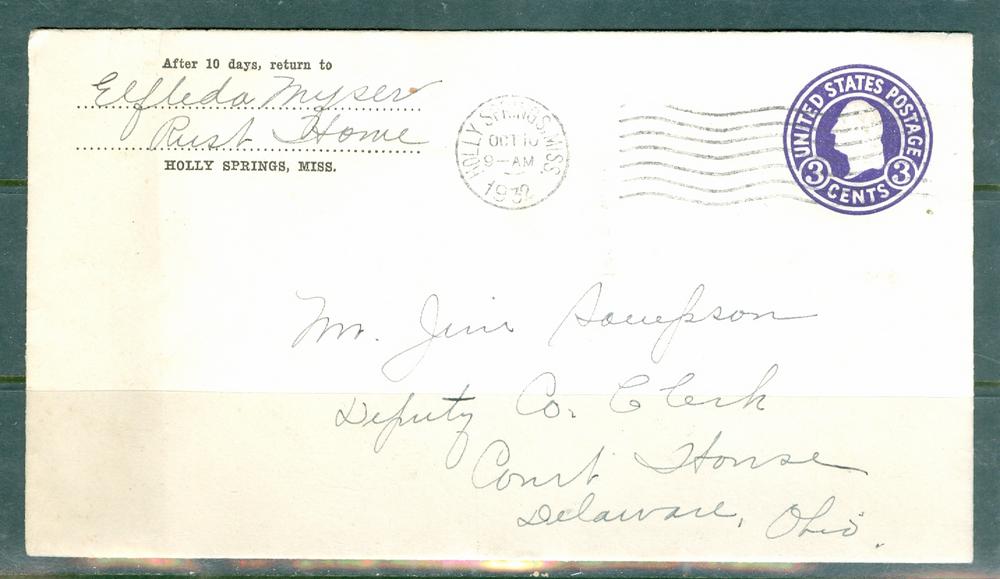 After 10 days, return to
Elfleda Myser
Rust Home
HOLLY SPRINGS, MISS.
HOLLY SPRINGS, MISS.
OCT 10
9-AM
1932
UNITED STATES POSTAGE
3 CENTS 3
Mr. Jim Sampson
Deputy Co. Clerk
Court House
Delaware, Ohio.